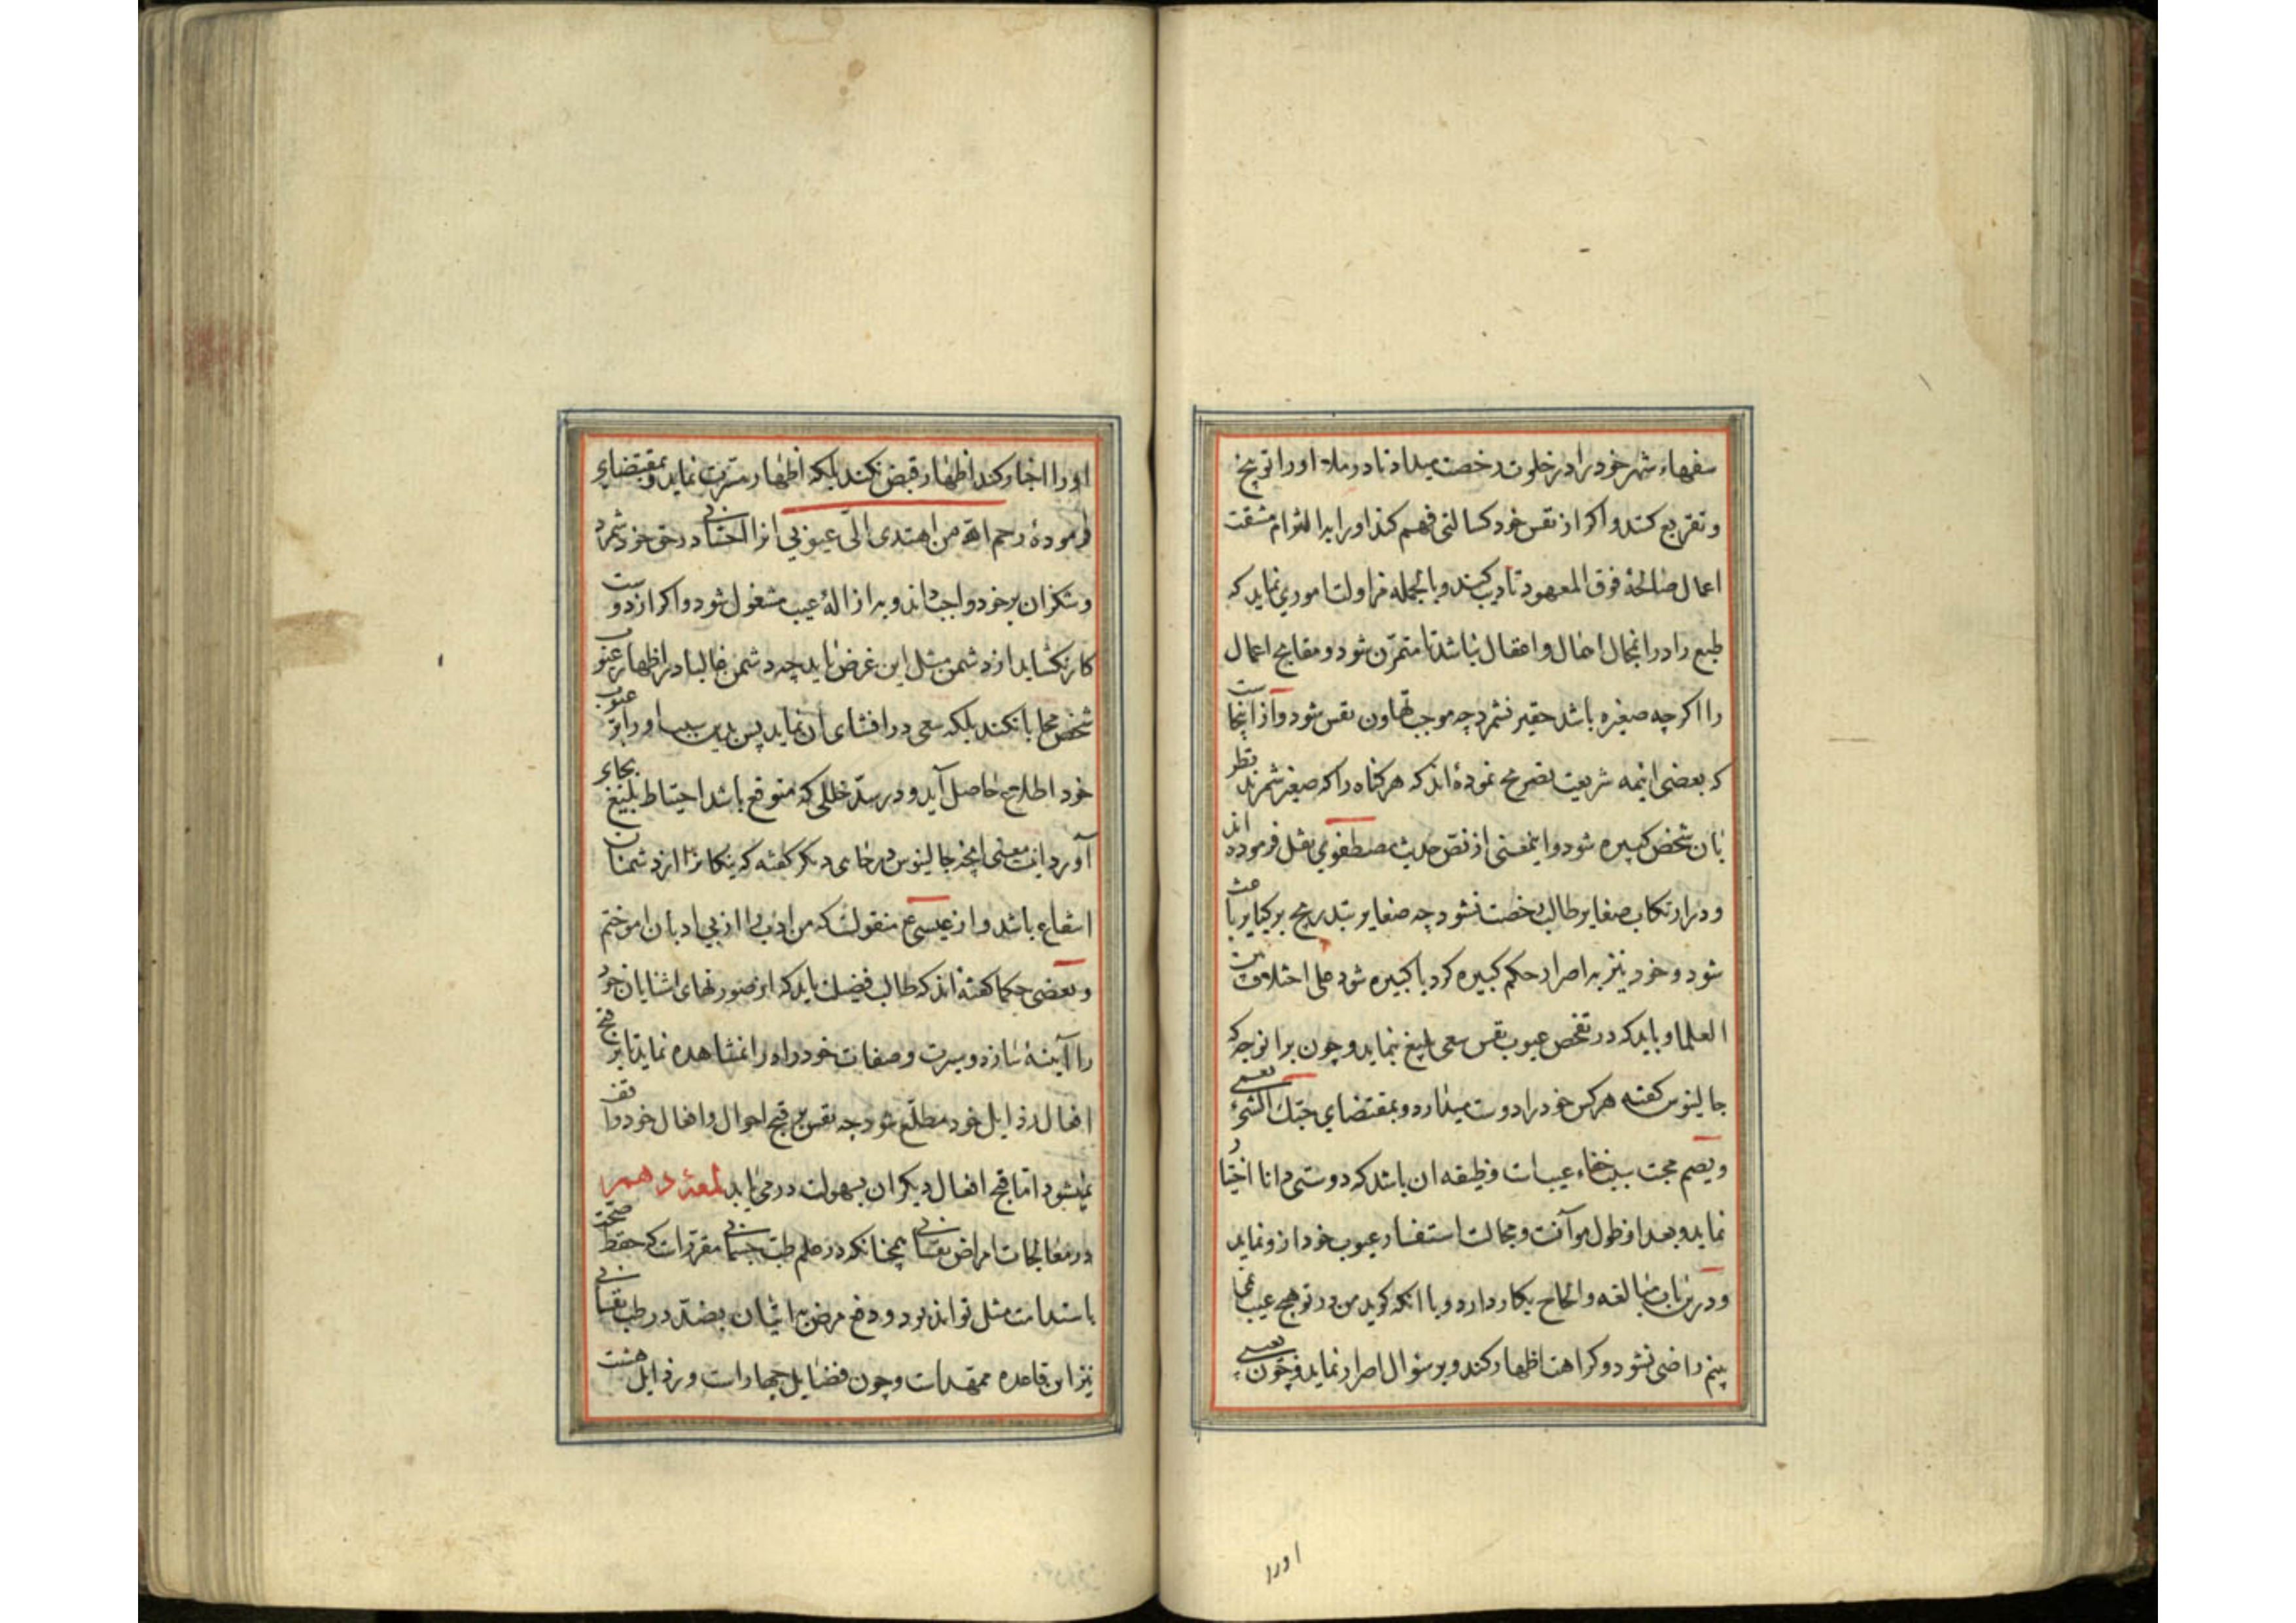 سفهاء شهر خود را در خلوت رخصت میداد تا در ملاء او را توبیخ
و تقریع کنند و اکر از نفس خود کسالتی فهم کند او را بر التوام مشقت
اعمال صالحهٔ فوق المعهود تادیب کند و بالجمله مزاولت اموری نماید که
طبع را در انجمال اخلال و امقال نباشد تا متمرّن شود و مقابح اعمال
را اکرچه صغیره باشد حقیر نشمرد چه موجب تهاون نفس شود و از اینجاست
که بعضی ائمه شریعت تصریح نموده‌اند که هر کناه را که صغیر شمرند بنظر
بان شخص کبیره شود و اینمعنی از نص حدیث مصطفوی نقل فرموده اند
و در ارتکاب صغایر طالب رخصت نشود چه صغایر بتدریج بر کبایر باعث
شود و خود نیز به اصرار حکم کبیره کرد یا کبیره شود علی اختلاف بین
العلما و باید که در تفحص عیوب نفس سعی بلیغ نماید و چون بر انوجه که
جالینوس کفته هر کس خود را دوست میدارد و بمقتضای حبّک الشیٔ یعمی
و یصم محبت سبب خفاء عیبست وظیفه ان باشد که دوستی دانا اختیار
نماید و بعد از طول موآنست و مجالست استفسار عیوب خود ازو نماید
و درین باب مبالغه و الحاح بکار دارد و با انکه کوید من در تو هیچ عیب نمی
بینم راضی نشود و کراهت اظهار کند و بر سئوال اصرار نماید و چون بعیبی
اورا
او را اخبار کند اظهار قبض نکند بلکه اظهار مسرت نماید و بمقتضای
فرمودهٔ رحم الله من اهتدی الیّ عیوبی انرا احسانی در حق خود شمرد
و شکر ان بر خود واجب داند و به ازالهٔ عیب مشغول شود و اکر از دوست
کار نکشاید از دشمن مثل این غرض نماید چه دشمن غالبا در اظهار عیوب
شخص محابا نکند بلکه سعی در افشای ان نماید پس بدین سبب او را بر عیوب
خود اطلاع حاصل آید و در سدّ خللی که متوقع باشد احتیاط بلیغ بجای
آورد اینست معنی انچه جالینوس در جای دیکر کفته که نیکانرا از دشمنان
انتفاع باشد و از عیسی ع منقولست که من ادب را از بی ادبان اموختم
و بعضی حکما کفته‌اند که طالب فضیلت باید که از صورتهای اشنایان خود
را آیینهٔ سازد و سیرت و صفات خود را در انمشاهده نماید تا بر قبح
افعال رذایل خود مطلّع شود چه نفس بر قبح احوال و افعال خود واقف
نمیشود اما قبح افعال دیکران بسهولت در می یابد لمعهٔ دهم
در معالجات امراض نفسانی همچنانکه در علم طب جسمانی مقررست که حفظ صحت
باستدامت مثل تواند بود و دفع مرض به اتیان بضدّ در طب نفسانی
نیز این قاعده ممهّدست و چون فضایل چهارست و رذایل هشت